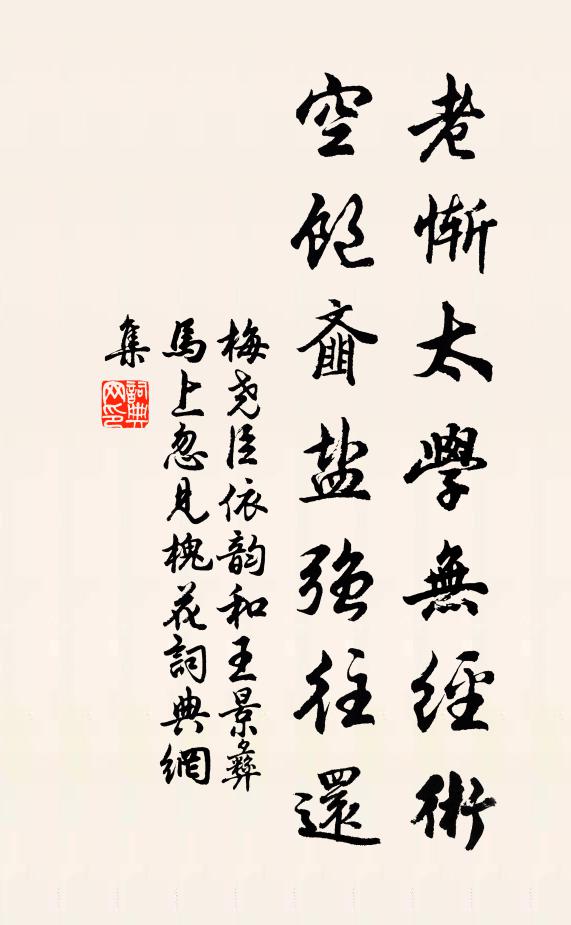 老慚太學無經術
空飽齏盐強往還
梅尧臣依韵和王景彝
馬上忽見槐花詞典網
集
詞典
网印